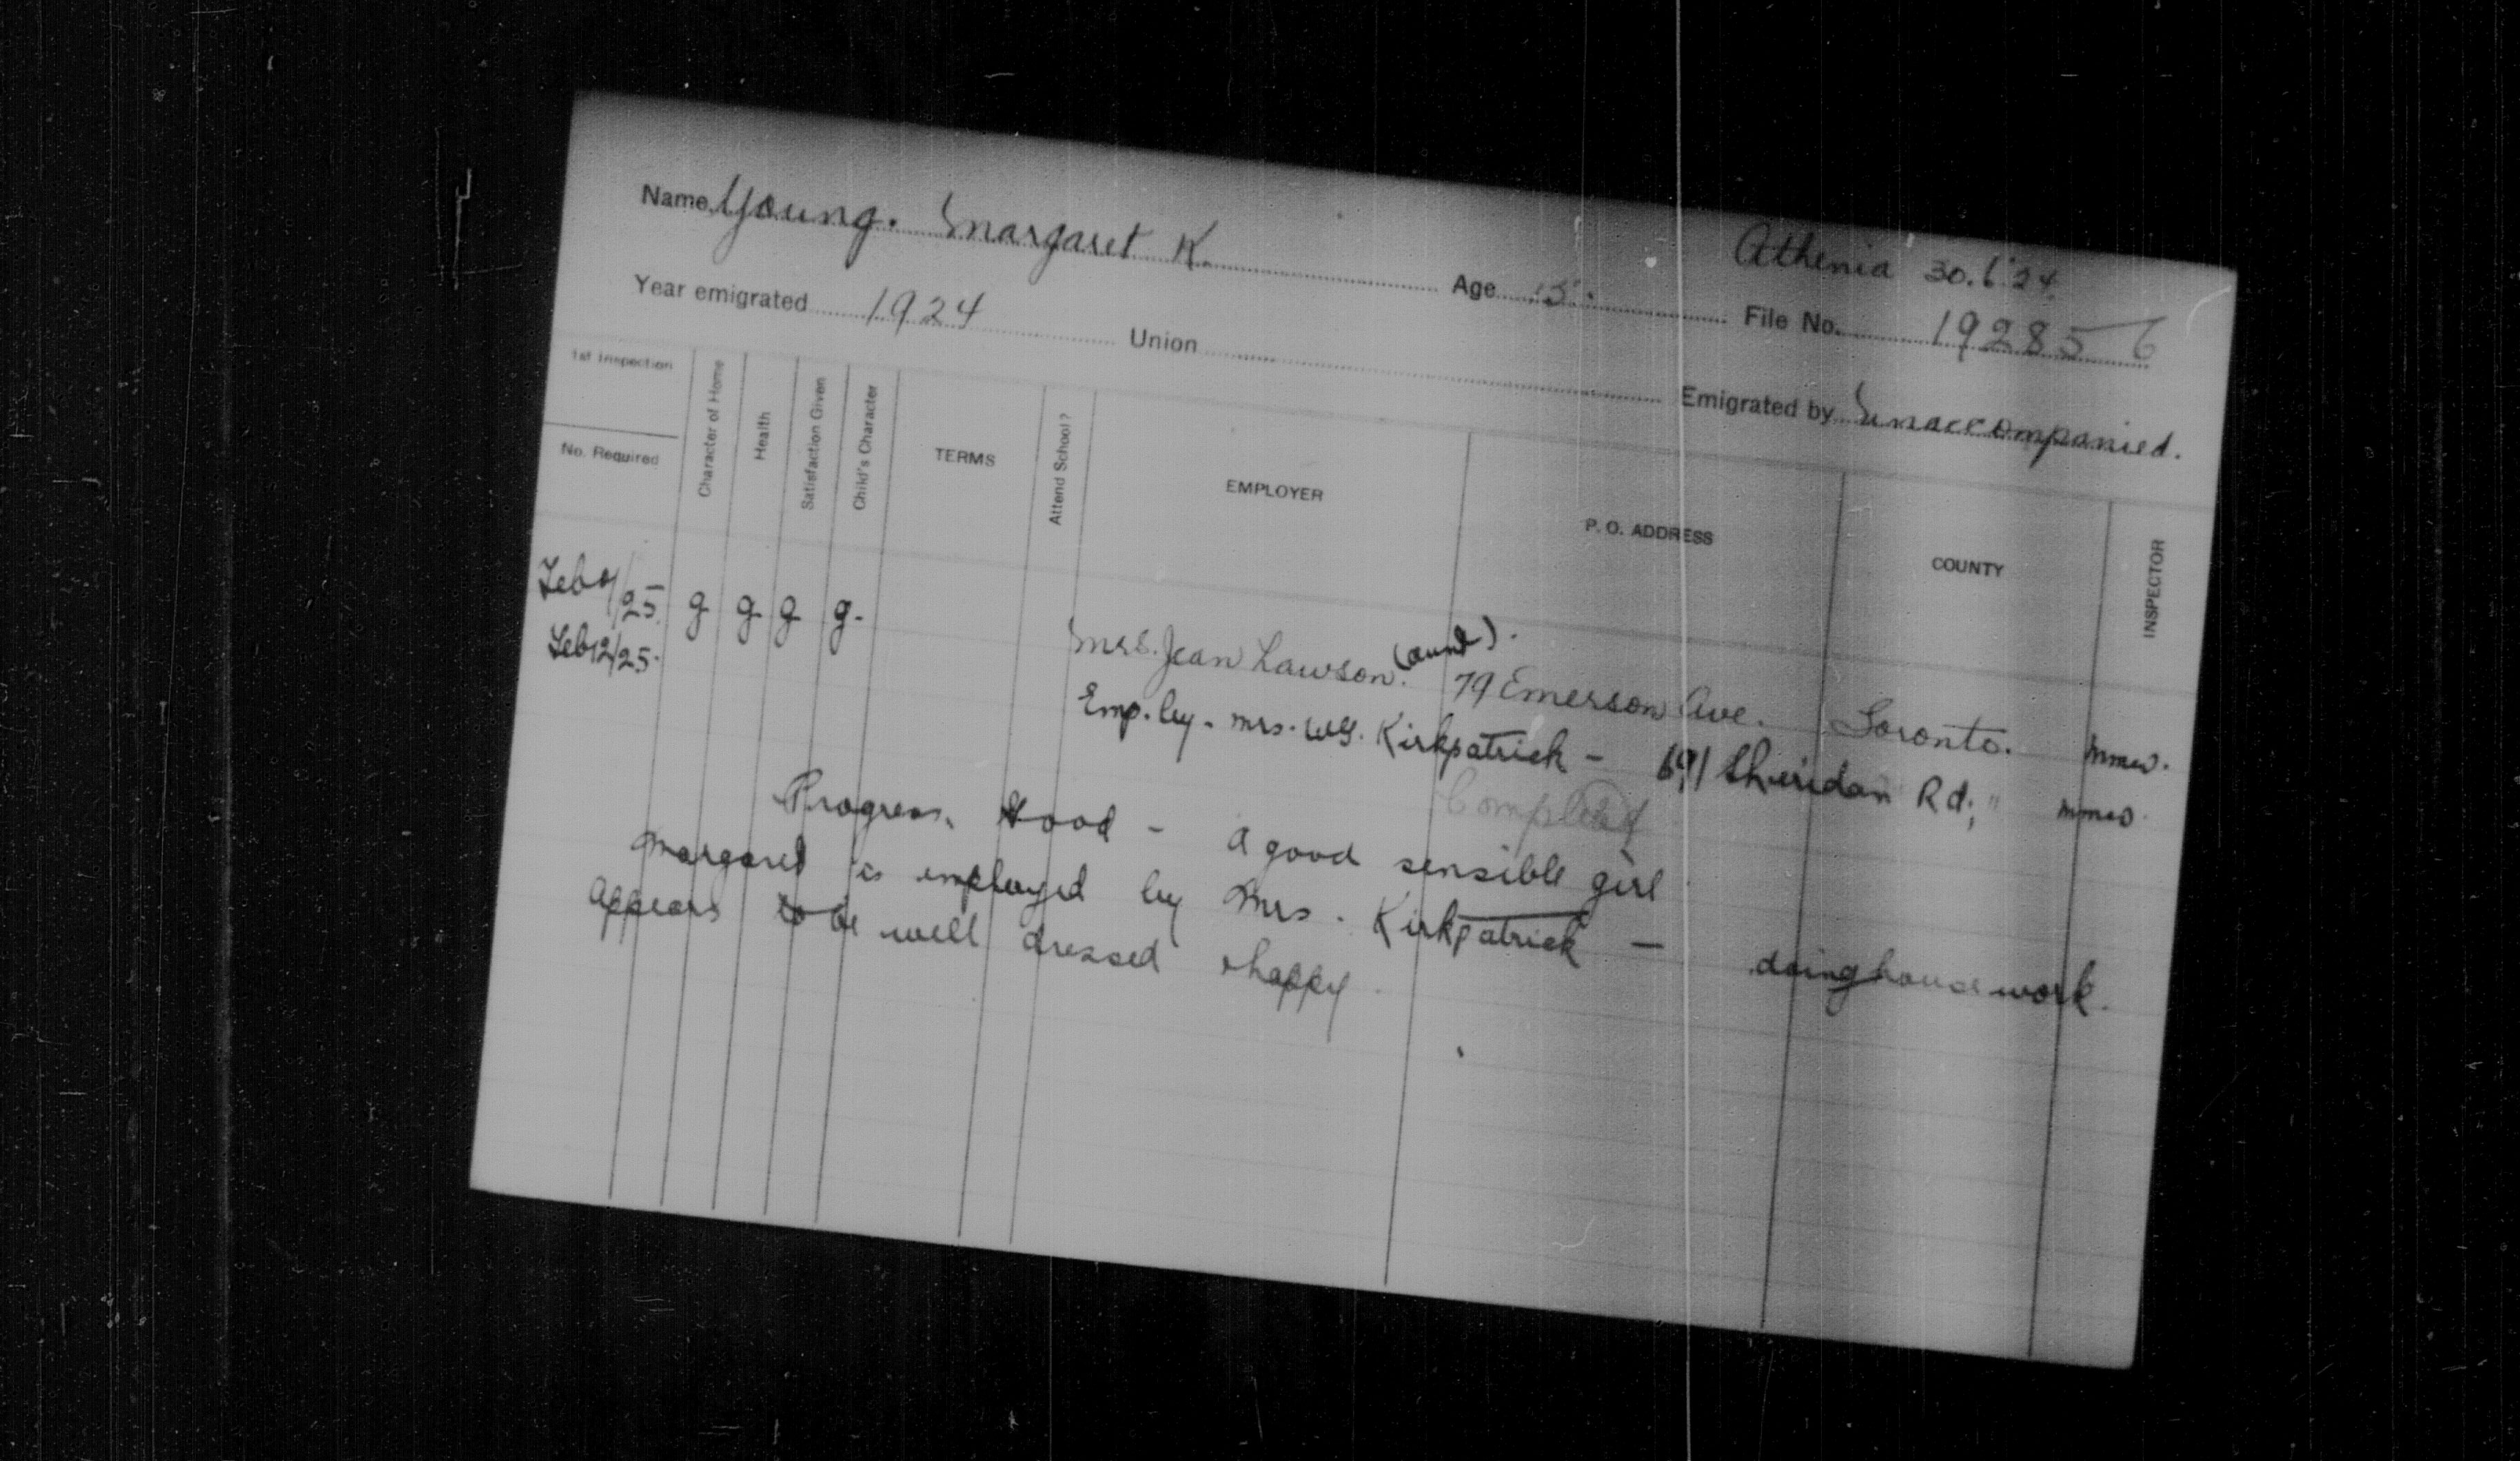 Athenia 30.6.24.
Name Young. Margaret K. Age 15. File No. 192856
Year emigrated 1924 Union Emigrated by Unaccompanied.
1st Inspection
No. Required
Character of Home
Health
Satisfaction Given
Child's Character
TERMS
Attend School?
EMPLOYER
P. O. ADDRESS
COUNTY
INSPECTOR
Feb /25. g g g g. Mrs. Jean Lawson. (aunt). 79 Emerson Ave. Toronto.
Feb 12/25. Emp. by - Mrs. W.G. Kirkpatrick - 691 Sheridan Rd; "
Completed
Progress. Good - A good sensible girl
Margaret is employed by Mrs. Kirkpatrick - doing housework.
Appears to be well dressed & happy.